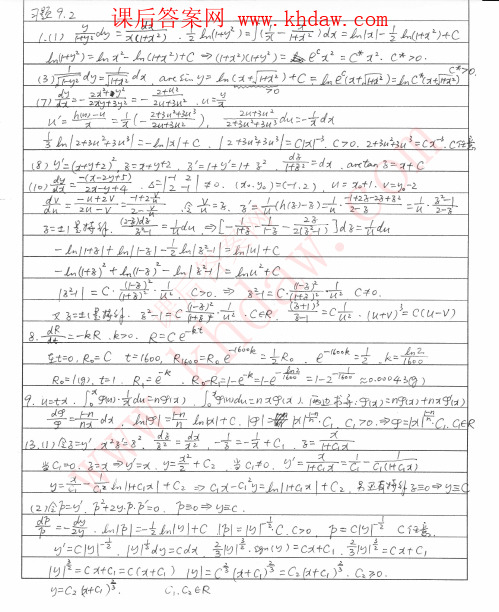 课后答案网 www.khdaw.com
习题 9.2
1.(1) y/(1+y²) dy = dx/(x(1+x²)). ½ln(1+y²) = ∫(1/x − x/(1+x²))dx = ln|x| − ½ln(1+x²) + C
ln(1+y²) = lnx² − ln(1+x²) + C ⇒ (1+x²)(1+y²) = e^C x² = C*x². C*>0.
(3) 1/√(1−y²) dy = 1/√(1+x²) dx. arcsin y = ln(x+√(1+x²)) + C = ln e^C(x+√(1+x²)) = ln C*(x+√(1+x²)) C*>0.
>0
u' = (h(u)−u)/x = 1/x(− (2+3u²+3u³)/(2u+3u²)), (2u+3u²)/(2+3u²+3u³) du = −1/x dx
⅓ln|2+3u²+3u³| = −ln|x| + C. |2+3u²+3u³| = C|x|⁻³. C>0. 2+3u²+3u³ = Cx⁻³. C任意
(8) y' = (x+y+2)² z = x+y+2. z' = 1+y' = 1+z². dz/(1+z²) = dx. arctan z = x+C
(10) dy/dx = −(x−2y+5)/(2x−y+4). Δ = |−1 2; 2 −1| ≠ 0. (x₀,y₀) = (−1,2), u = x₀+1. v = y₀−2
dv/du = (−u+2v)/(2u−v) = (−1+2v/u)/(2−v/u). 令 v/u = z. z' = 1/u(h(z)−z) = 1/u · (−1+2z−2z+z²)/(2−z) = 1/u · (z²−1)/(2−z)
−ln|1+z| + ln|1−z| − ½ln|z²−1| = ln|u| + C
−ln(1+z)² + ln(1−z)² − ln|z²−1| = lnu² + C
|z²−1| = C·(1−z)²/(1+z)² · 1/u². C>0. ⇒ z²−1 = C·(1−z)²/(1+z)² · 1/u² C≠0.
又 z=±1是特解. z²−1 = C (1−z)²/(1+z)² · 1/u². C∈R. (z+1)³/(z−1) = C 1/u². (u+v)³ = C(u−v)
8. dR/dt = −kR. k>0. R = Ce^(−kt)
在t=0, R₀=C t=1600, R₁₆₀₀ = R₀e^(−1600k) = ½R₀. e^(−1600k) = ½. k = ln2/1600
R₀ = 1(g), t=1. R₁ = e^(−k). R₀−R₁ = 1−e^(−k) = 1−e^(−ln2/1600) = 1−2^(−1/1600) ≈ 0.00043(g)
dφ/φ = (1−n)/(nx) dx. ln|φ| = (1−n)/n ln|x| + C. |φ| = |x|^((1−n)/n)·C₁. C₁>0. ⇒ φ = |x|^((1−n)/n)·C₁. C₁∈R
13.(1) 令z=y'. x²z'=z². dz/z² = dx/x². −1/z = −1/x + C₁, z = x/(1+C₁x)
当C₁=0. z=x ⇒ y'=x. y = x²/2 + C₂. 当C₁≠0. y' = x/(1+C₁x) = 1/C₁ − 1/(C₁(1+C₁x))
y = x/C₁ − 1/C₁² ln|1+C₁x| + C₂ ⇒ C₁x − C₁²y = ln|1+C₁x| + C₂. 另有特解 z≡0 ⇒ y≡C
(2) 令p=y'. p²+2y·p·p'=0. p≡0 ⇒ y≡C.
dp/p = −dy/2y. ln|p| = −½ln|y| + C |p| = |y|^(−½)·C. C>0. p = C|y|^(−½) C任意.
y' = C|y|^(−½). |y|^(½)dy = Cdx. ⅔|y|^(3/2)·sgn(y) = Cx+C₁. ⅔|y|^(3/2) = Cx+C₁
|y|^(3/2) = Cx+C₁ = C(x+C₁) |y| = C^(2/3)(x+C₁)^(2/3) = C₂(x+C₁)^(2/3). C₂≥0.
y = C₂(x+C₁)^(2/3). C₁,C₂∈R